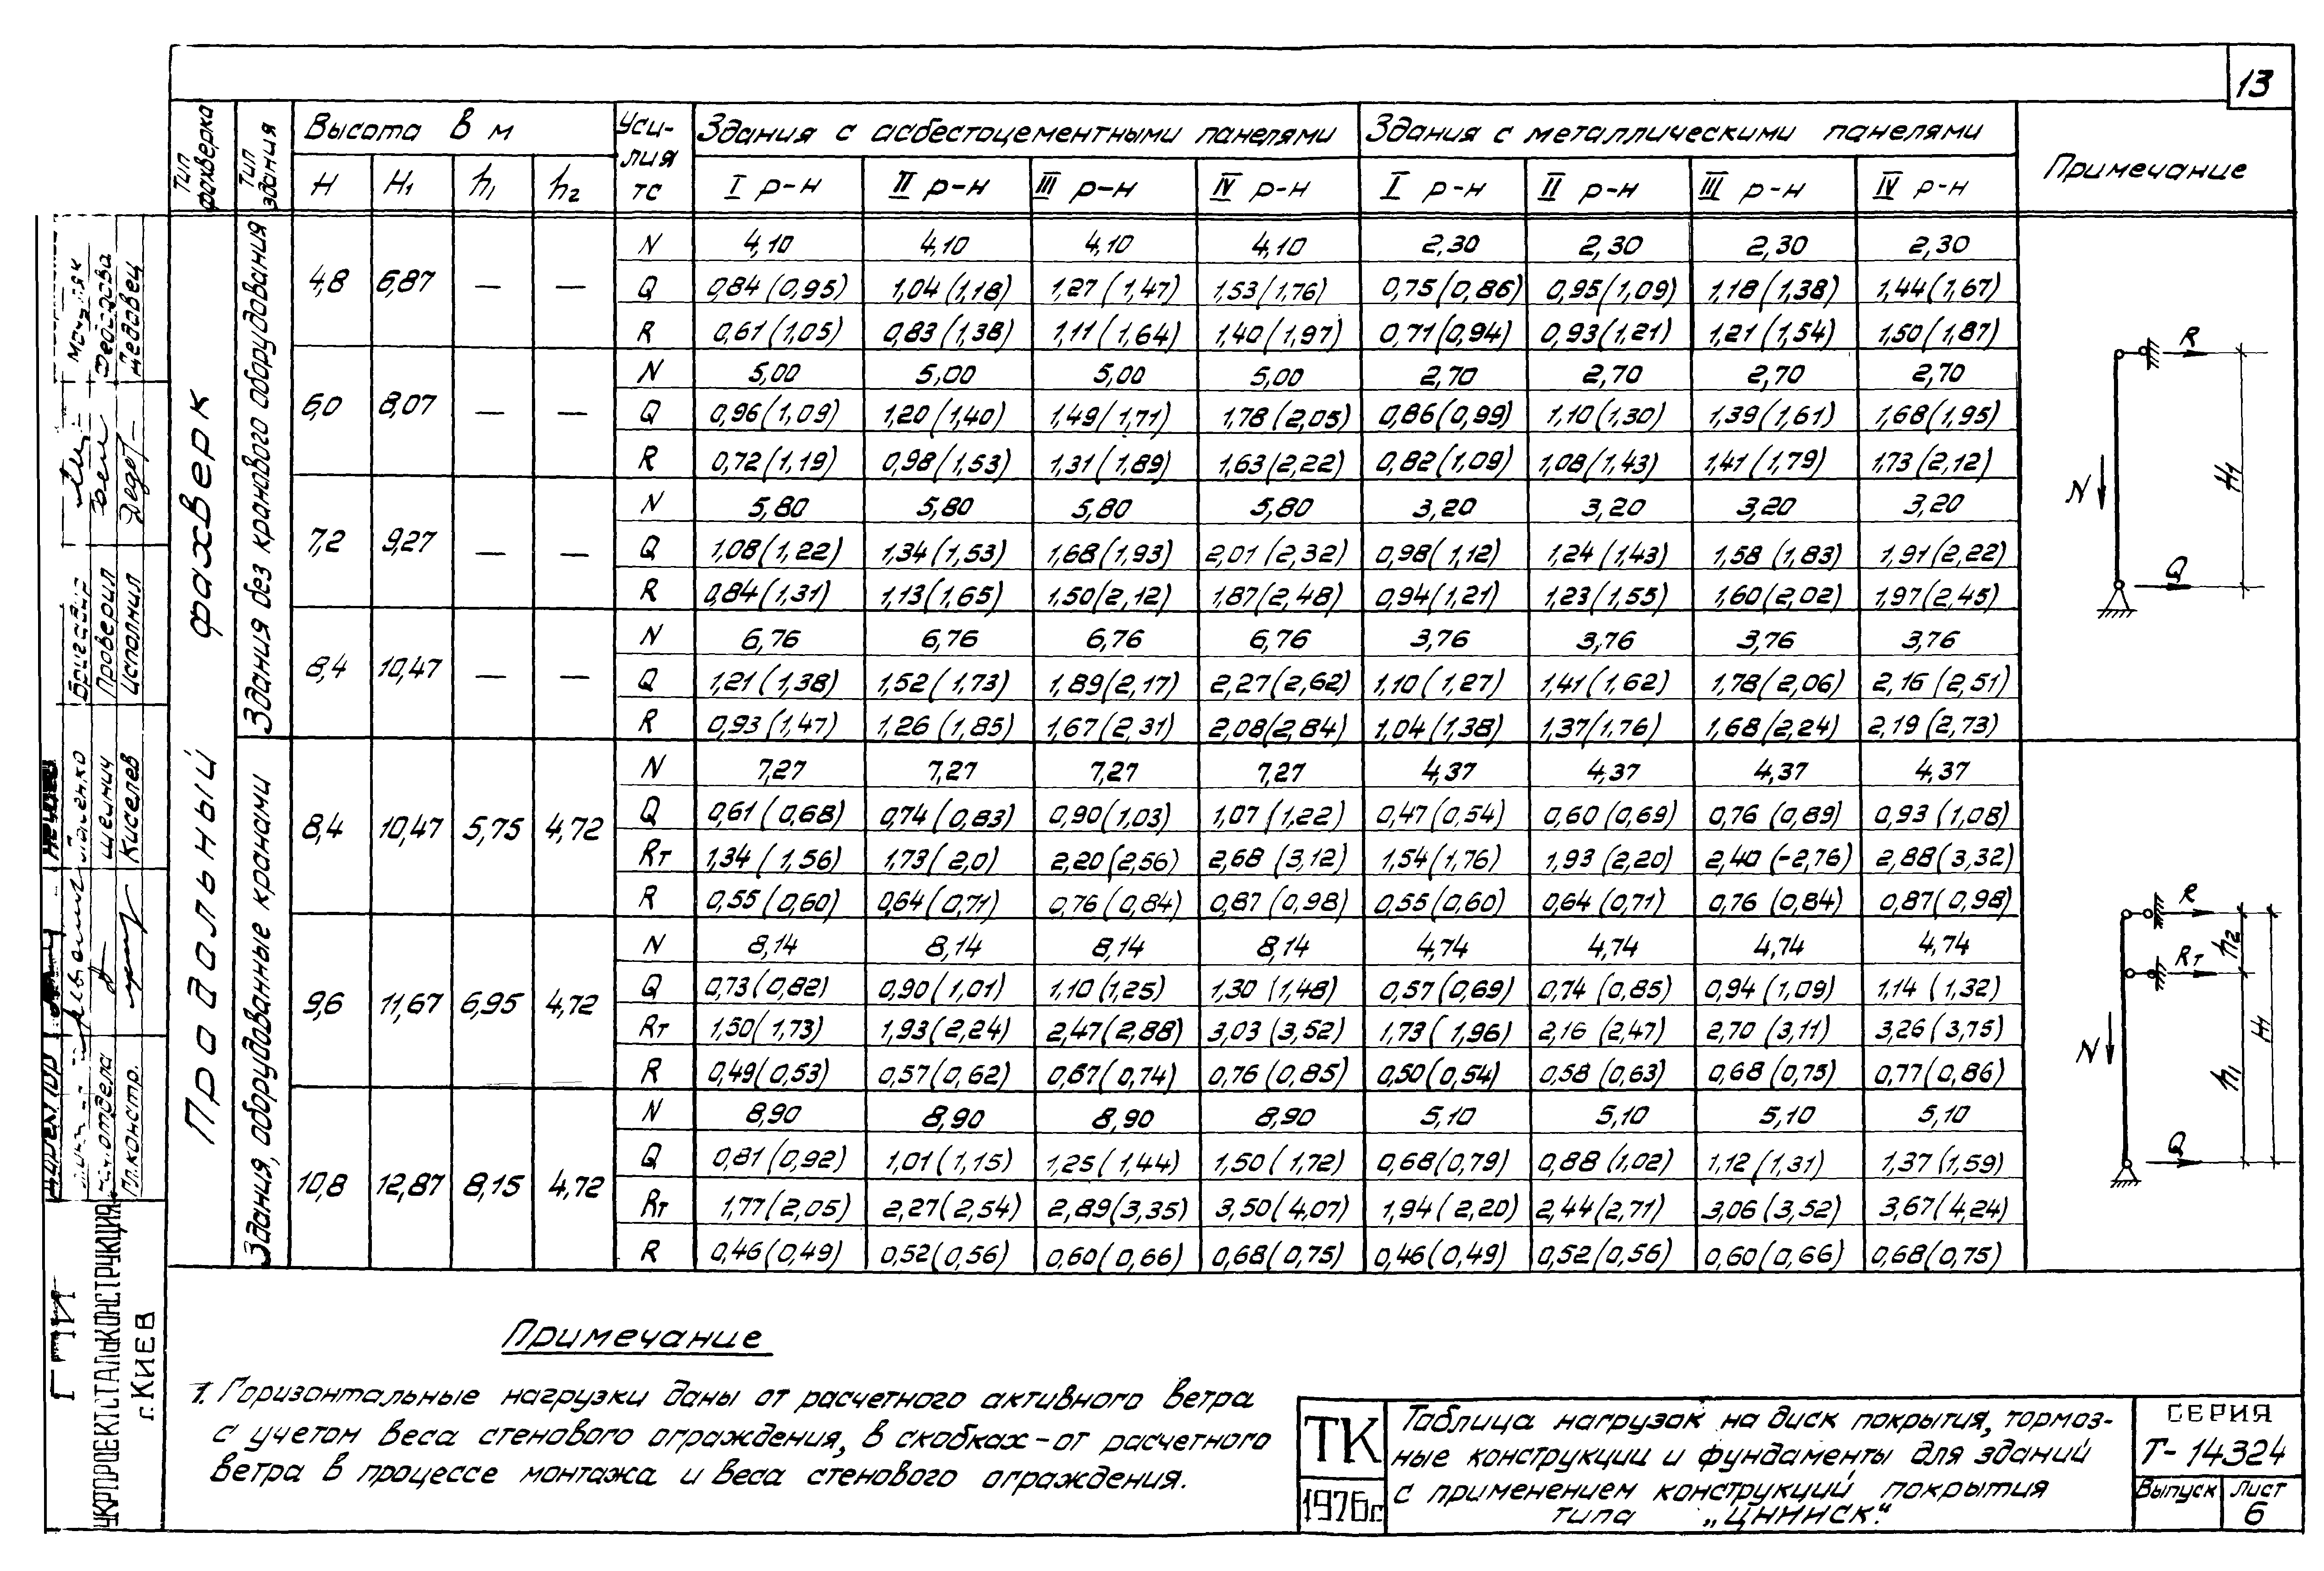 13
Тип фахверка
Тип здания
Высота в м
Усилия тс
Здания с асбестоцементными панелями
Здания с металлическими панелями
Примечание
H H₁ h₁ h₂
I р-н II р-н III р-н IV р-н I р-н II р-н III р-н IV р-н
Продольный фахверк
Здания без кранового оборудования
4,8 6,87 — —
N 4,10 4,10 4,10 4,10 2,30 2,30 2,30 2,30
Q 0,84(0,95) 1,04(1,18) 1,27(1,47) 1,53(1,76) 0,75(0,86) 0,95(1,09) 1,18(1,38) 1,44(1,67)
R 0,61(1,05) 0,83(1,38) 1,11(1,64) 1,40(1,97) 0,71(0,94) 0,93(1,21) 1,21(1,54) 1,50(1,87)
6,0 8,07 — —
N 5,00 5,00 5,00 5,00 2,70 2,70 2,70 2,70
Q 0,96(1,09) 1,20(1,40) 1,49(1,71) 1,78(2,05) 0,86(0,99) 1,10(1,30) 1,39(1,61) 1,68(1,95)
R 0,72(1,19) 0,98(1,53) 1,31(1,89) 1,63(2,22) 0,82(1,09) 1,08(1,43) 1,41(1,79) 1,73(2,12)
7,2 9,27 — —
N 5,80 5,80 5,80 5,80 3,20 3,20 3,20 3,20
Q 1,08(1,22) 1,34(1,53) 1,68(1,93) 2,01(2,32) 0,98(1,12) 1,24(1,43) 1,58(1,83) 1,91(2,22)
R 0,84(1,31) 1,13(1,65) 1,50(2,12) 1,87(2,48) 0,94(1,21) 1,23(1,55) 1,60(2,02) 1,97(2,45)
8,4 10,47 — —
N 6,76 6,76 6,76 6,76 3,76 3,76 3,76 3,76
Q 1,21(1,38) 1,52(1,73) 1,89(2,17) 2,27(2,62) 1,10(1,27) 1,41(1,62) 1,78(2,06) 2,16(2,51)
R 0,93(1,47) 1,26(1,85) 1,67(2,31) 2,08(2,84) 1,04(1,38) 1,37(1,76) 1,68(2,24) 2,19(2,73)
Здания, оборудованные кранами
8,4 10,47 5,75 4,72
N 7,27 7,27 7,27 7,27 4,37 4,37 4,37 4,37
Q 0,61(0,68) 0,74(0,83) 0,90(1,03) 1,07(1,22) 0,47(0,54) 0,60(0,69) 0,76(0,89) 0,93(1,08)
Rт 1,34(1,56) 1,73(2,0) 2,20(2,56) 2,68(3,12) 1,54(1,76) 1,93(2,20) 2,40(-2,76) 2,88(3,32)
R 0,55(0,60) 0,64(0,71) 0,76(0,84) 0,87(0,98) 0,55(0,60) 0,64(0,71) 0,76(0,84) 0,87(0,98)
9,6 11,67 6,95 4,72
N 8,14 8,14 8,14 8,14 4,74 4,74 4,74 4,74
Q 0,73(0,82) 0,90(1,01) 1,10(1,25) 1,30(1,48) 0,57(0,69) 0,74(0,85) 0,94(1,09) 1,14(1,32)
Rт 1,50(1,73) 1,93(2,24) 2,47(2,88) 3,03(3,52) 1,73(1,96) 2,16(2,47) 2,70(3,11) 3,26(3,75)
R 0,49(0,53) 0,57(0,62) 0,67(0,74) 0,76(0,85) 0,50(0,54) 0,58(0,63) 0,68(0,75) 0,77(0,86)
10,8 12,87 8,15 4,72
N 8,90 8,90 8,90 8,90 5,10 5,10 5,10 5,10
Q 0,81(0,92) 1,01(1,15) 1,25(1,44) 1,50(1,72) 0,68(0,79) 0,88(1,02) 1,12(1,31) 1,37(1,59)
Rт 1,77(2,05) 2,27(2,54) 2,89(3,35) 3,50(4,07) 1,94(2,20) 2,44(2,71) 3,06(3,52) 3,67(4,24)
R 0,46(0,49) 0,52(0,56) 0,60(0,66) 0,68(0,75) 0,46(0,49) 0,52(0,56) 0,60(0,66) 0,68(0,75)
R
N
H₁
Q
R
Rт
h₂
N
H₁
h₁
Q
Примечание
1. Горизонтальные нагрузки даны от расчетного активного ветра
с учетом веса стенового ограждения, в скобках – от расчетного
ветра в процессе монтажа и веса стенового ограждения.
ТК
1976г
Таблица нагрузок на диск покрытия, тормоз-
ные конструкции и фундаменты для зданий
с применением конструкций покрытия
типа „ЦНИИСК".
СЕРИЯ
Т-14324
Выпуск
Лист
6
ГПИ
УКРПРОЕКТСТАЛЬКОНСТРУКЦИЯ
г. КИЕВ
Директор
отдела
Гл.констр.
Киселев
Бригадир
Проверил
Исполнил
Дедовец